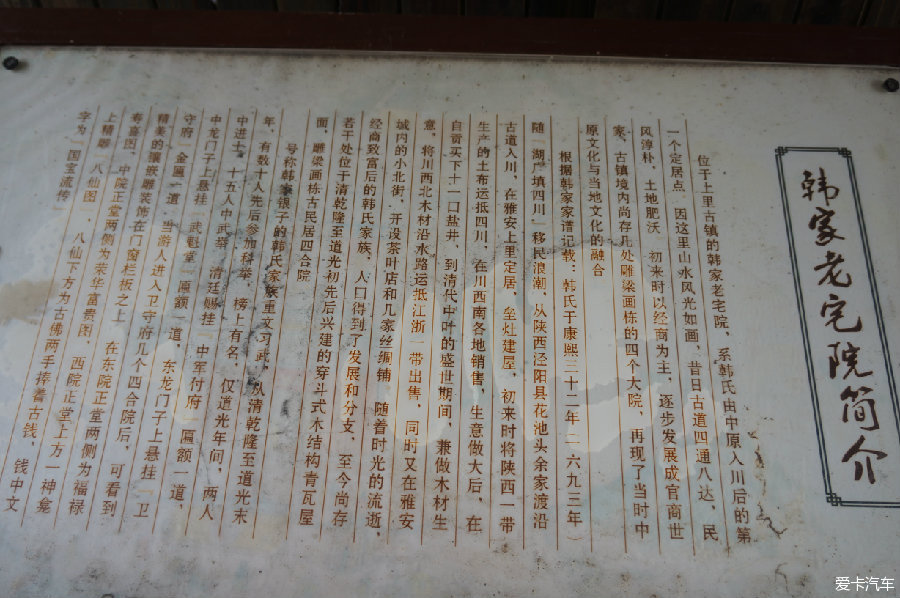 韩家老宅院简介
位于上里古镇的韩家老宅院，系韩氏由中原入川后的第
一个定居点。因这里山水风光如画，昔日古道四通八达，民
风淳朴，土地肥沃，初来时以经商为主，逐步发展成官商世
家，古镇境内尚存几处雕梁画栋的四个大院，再现了当时中
原文化与当地文化的融合
根据韩家家谱记载：韩氏于康熙三十二年二一六九三年
随「湖广填四川」移民浪潮，从陕西泾阳县花池头余家渡沿
古道入川，在雅安上里定居，垒灶建屋，初来时将陕西一带
生产的土布运抵四川，在川西南各地销售，生意做大后，在
自贡买下十一口盐井，到清代中叶的盛世期间，兼做木材生
意，将川西北木材沿水路运抵江浙一带出售，同时又在雅安
城内的小北街，开设茶叶店和几家丝绸铺，随着时光的流逝，
经商致富后的韩氏家族，人口得到了发展和分支，至今尚存
若干处位于清乾隆至道光初先后兴建的穿斗式木结构青瓦屋
面，雕梁画栋古民居四合院
号称韩家银子的韩氏家族重文习武，从清乾隆至道光末
年，有数十人先后参加科举，榜上有名，仅道光年间，两人
中进士，十五人中武举，清廷赐挂「中军付府」匾额一道，
中龙门子上悬挂「武魁堂」匾额一道，东龙门子上悬挂「卫
守府」金匾一道，当游人进入卫守府几个四合院后，可看到
精美的镶嵌雕装饰在门窗栏板之上，在东院正堂两侧为福禄
寿喜图，中院正堂两侧为荣华富贵图，西院正堂上方一神龛
上精雕「八仙图」，八仙下方为古佛两手捧着古钱，钱中文
字为「国宝流传」
爱卡汽车